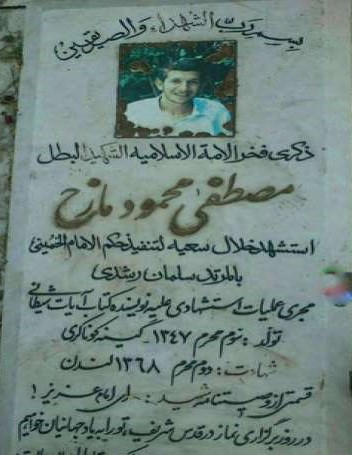 بسم رب الشهداء والصدیقین
ذكرى فخر الامة الاسلاميه الشهيد البطل
مصطفى محمود مازح
استشهد خلال سعيه لتنفيذ حكم الامام الخميني
بالمرتد سلمان رشدي
مجری عملیات استشهادی علیه نویسنده کتاب آیات شیطانی
تولد : نوم محرم ۱۳۴۷ - گینه کوناکری
شهادت : دوم محرم ۱۳۶۸ لندن
قسمتی از وصیتنامه شهید : ای امام عزیز !
در روز برگزاری نماز در قدس شریف، تو را به یاد جهانیان خواهیم